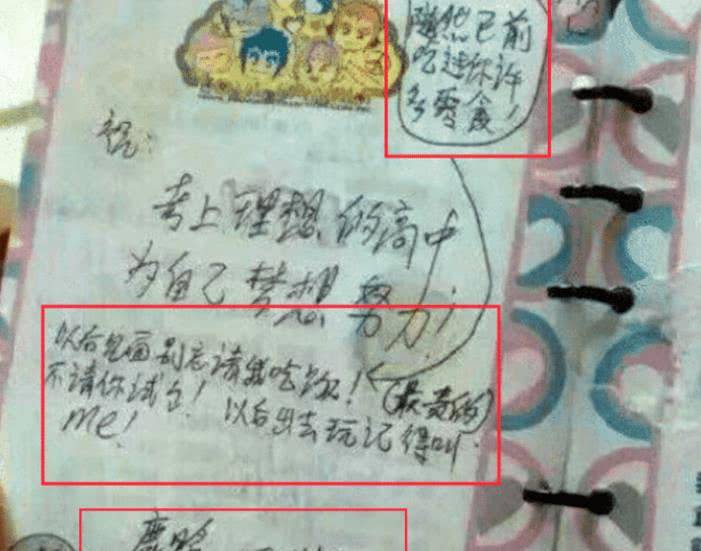 虽然已前
吃过你许
多零食!
祝:
考上理想的高中
为自己梦想努力!
以后见面别忘请我吃饭!(最贵的)
不请你试勺! 以后出去玩记得叫
me!
鹿晗